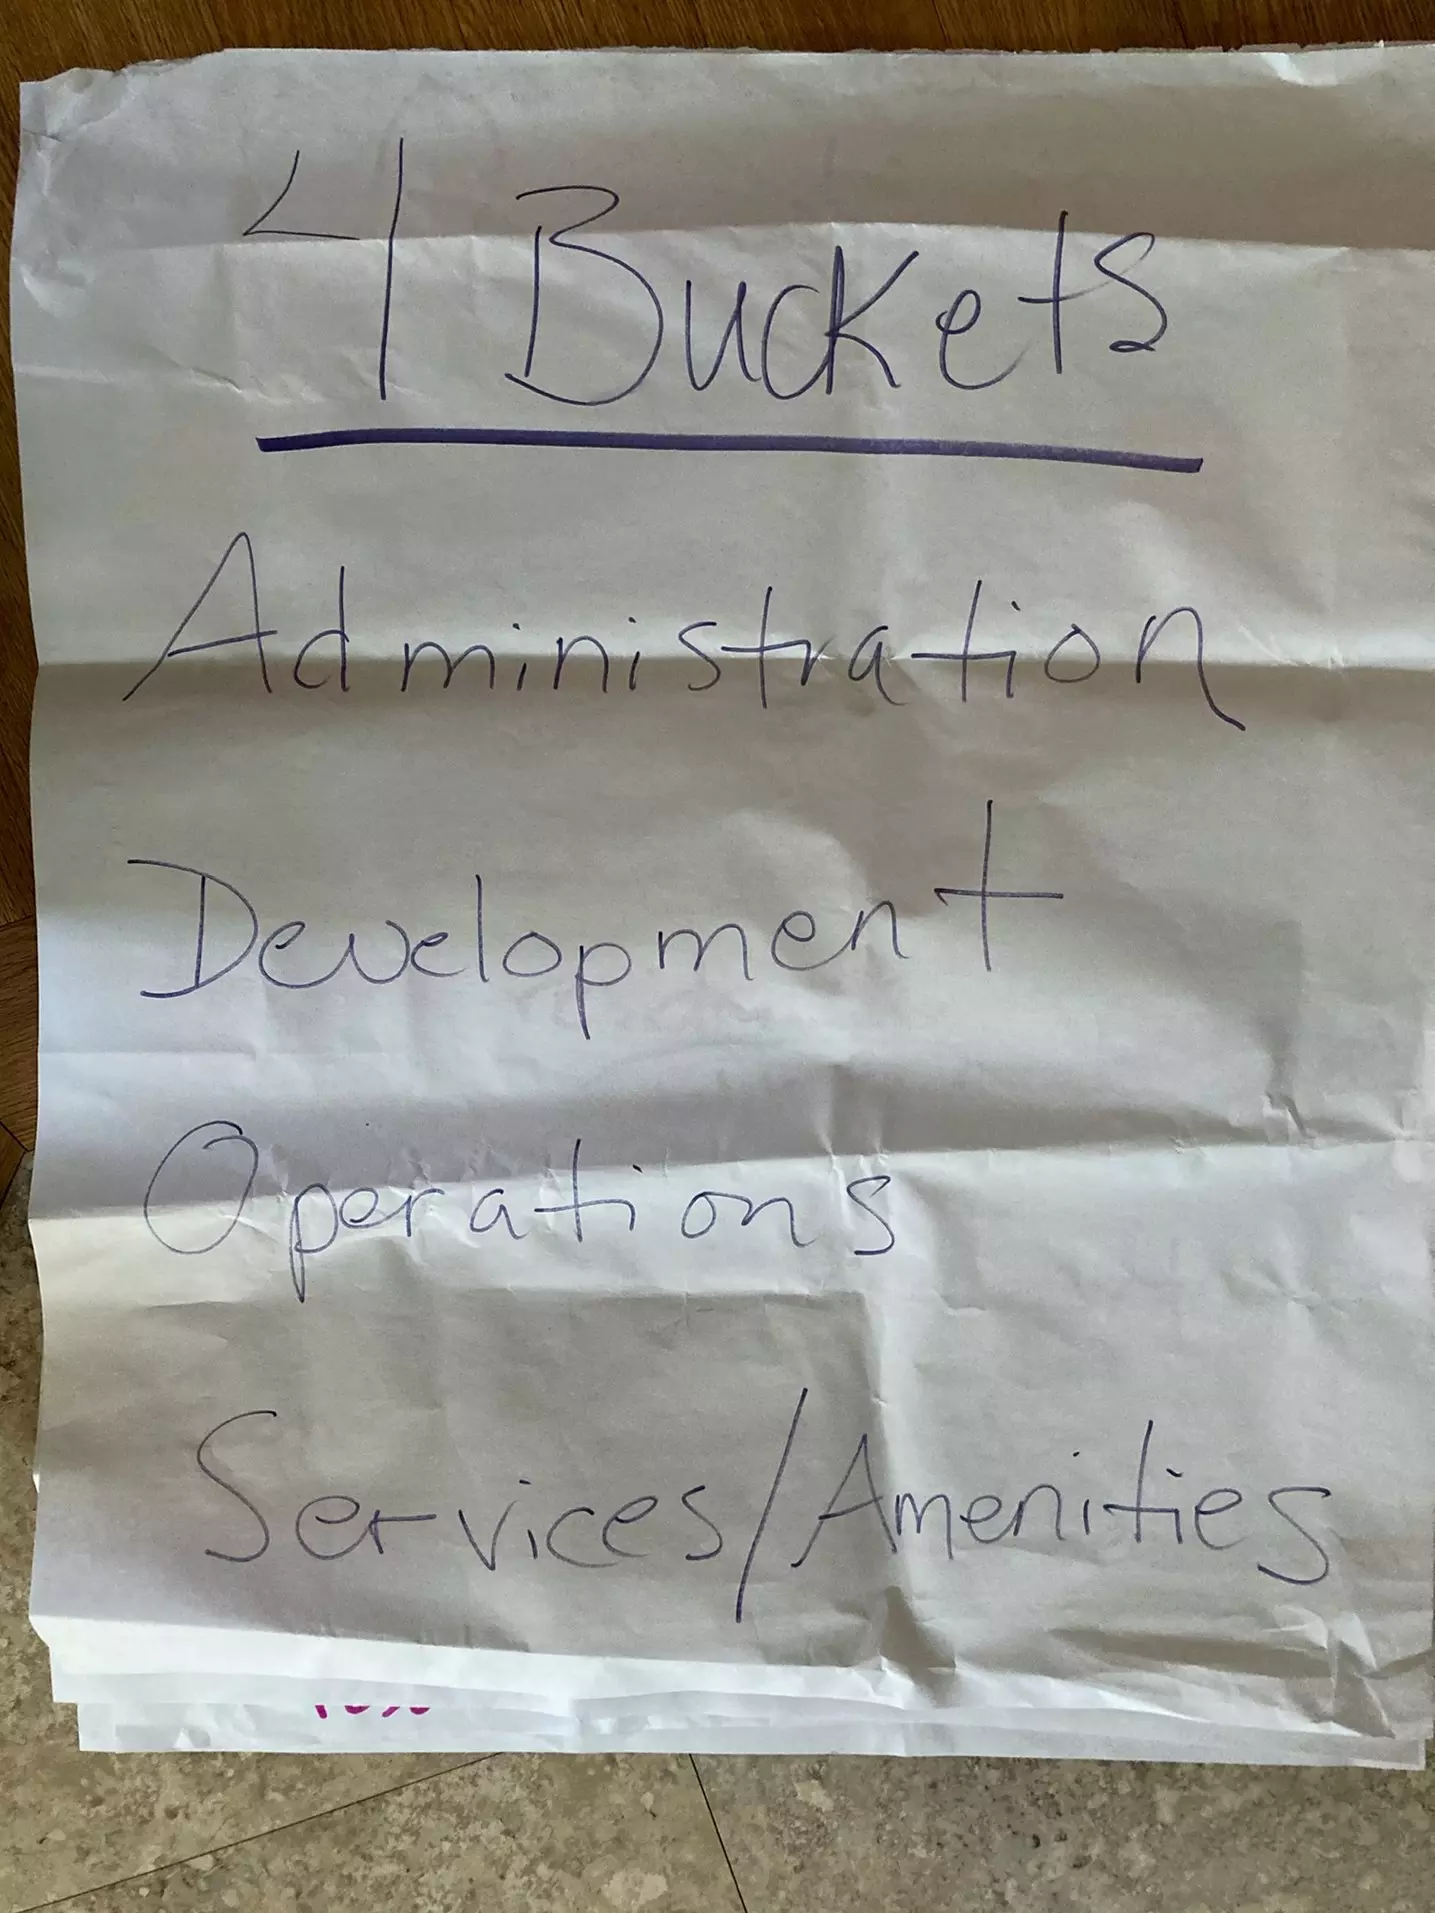 4 Buckets
Administration
Development
Operations
Services/Amenities